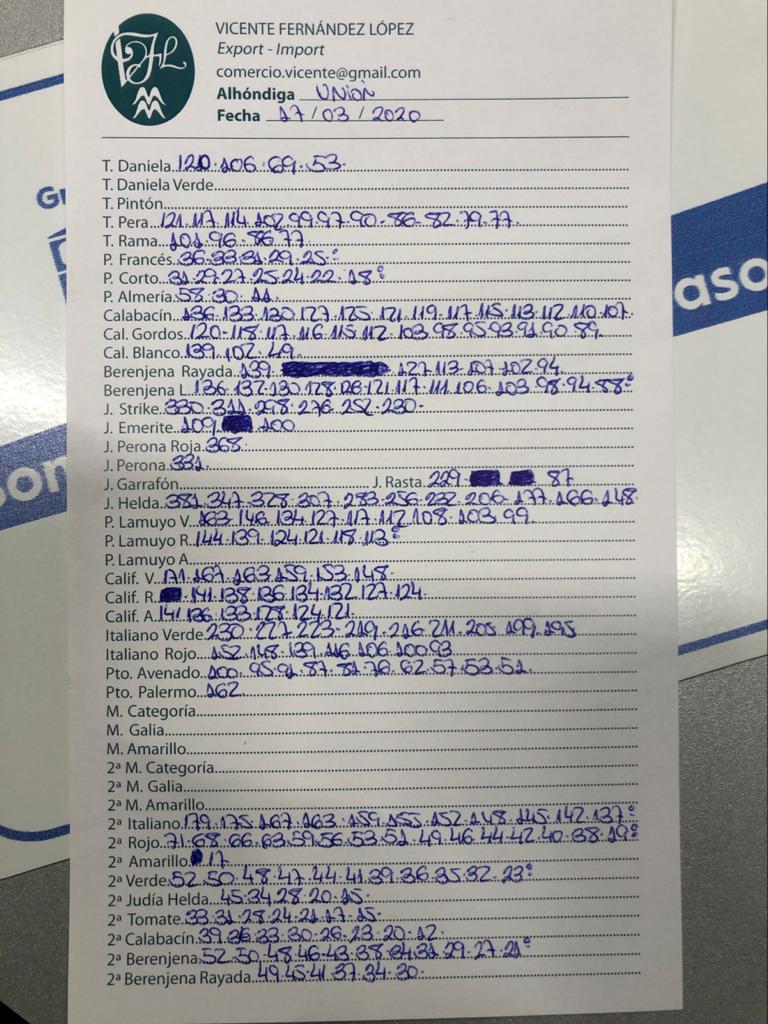 VFL
VICENTE FERNÁNDEZ LÓPEZ
Export - Import
comercio.vicente@gmail.com
Alhóndiga UNIÓN
Fecha 17 / 03 / 2020
T. Daniela 120. 106. 69. 53.
T. Daniela Verde
T. Pintón
T. Pera 121. 117. 114. 102. 99. 97. 90. 86. 82. 79. 77.
T. Rama 101. 96. 86. 77
P. Francés 36. 33. 31. 29. 25.º
P. Corto 31. 29. 27. 25. 24. 22. 18.º
P. Almería 58. 30. 11
Calabacín 136. 133. 130. 127. 125. 121. 119. 117. 115. 113. 112. 110. 107.
Cal. Gordos 120. 118. 117. 116. 115. 112. 103. 98. 95. 93. 91. 90. 89
Cal. Blanco 139. 102. 49.
Berenjena Rayada 139. 127. 113. 107. 102. 94.
Berenjena L. 136. 132. 130. 128. 126. 121. 117. 111. 106. 103. 98. 94. 88.º
J. Strike 330. 311. 298. 276. 252. 230.
J. Emerite 109. 100
J. Perona Roja 368.
J. Perona 331
J. Garrafón J. Rasta 229. 87
J. Helda 381. 347. 328. 307. 283. 256. 232. 206. 177. 166. 148
P. Lamuyo V. 163. 146. 134. 127. 117. 112. 108. 103. 99.
P. Lamuyo R. 144. 139. 124. 121. 118. 113.º
P. Lamuyo A.
Calif. V. 171. 167. 163. 159. 153. 148.
Calif. R. 141. 138. 136. 134. 132. 127. 124.
Calif. A. 141. 136. 133. 128. 124. 121.
Italiano Verde 230. 227. 223. 219. 216. 211. 205. 199. 195
Italiano Rojo 152. 148. 139. 116. 106. 100. 93
Pto. Avenado 100. 95. 91. 87. 81. 76. 62. 57. 53. 51.
Pto. Palermo 162
M. Categoría
M. Galia
M. Amarillo
2ª M. Categoría
2ª M. Galia
2ª M. Amarillo
2ª Italiano 179. 175. 167. 163. 159. 155. 152. 148. 145. 142. 137.º
2ª Rojo 71. 68. 66. 63. 59. 56. 53. 51. 49. 46. 44. 42. 40. 38. 19.º
2ª Amarillo 17
2ª Verde 52. 50. 48. 47. 44. 41. 39. 36. 35. 32. 23.º
2ª Judía Helda 45. 34. 28. 20. 15.
2ª Tomate 33. 31. 28. 24. 21. 17. 15.
2ª Calabacín 39. 36. 33. 30. 26. 23. 20. 12.
2ª Berenjena 52. 50. 48. 46. 43. 38. 34. 31. 29. 27. 21.º
2ª Berenjena Rayada 49. 45. 41. 37. 34. 30.
aso
son